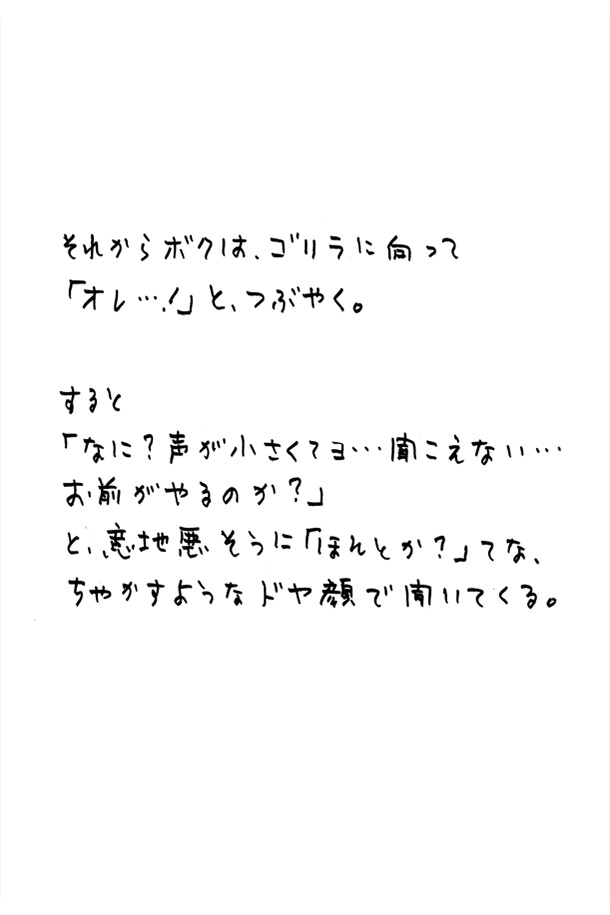 それからボクは、ゴリラに向って
「オレ…！」と、つぶやく。
すると
「なに？声が小さくてヨ…聞こえない…
お前がやるのか？」
と、意地悪そうに「ほんとか？」てな、
ちゃかすようなドヤ顔で聞いてくる。